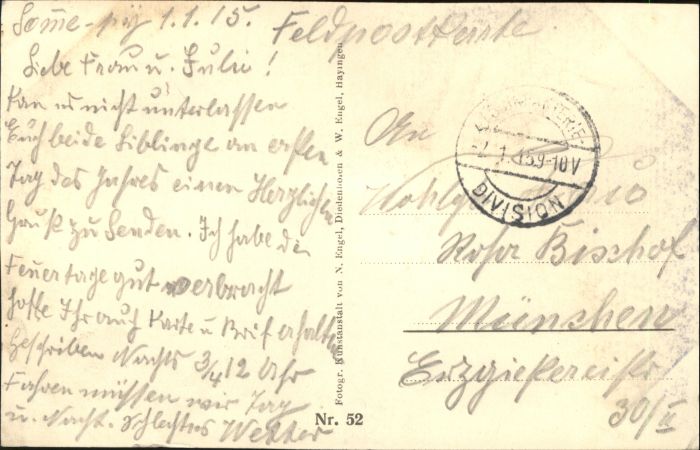 Somme-py 1.1.15.
Feldpostkarte
Liebe Frau u. Julie!
Kan es nicht unterlassen
Euch beide Liblinge an ersten
Tag des Jahres einen Herzlichen
Gruß zu senden. Ich habe die
Feuertage gut verbracht
hoffe Ihr auch Karte u Brief erhalten
Geschriben Nachts 3/4 12 Uhr
Fahren müssen wir Tag
u. Nacht. Schlechtes Wetter
Fotogr. Kunstanstalt von N. Engel, Diedenhofen & W. Engel, Hayingen
Nr. 52
INFANTERIE-
1.15 9-10V
DIVISION
An
Rosa Bischof
München
Erzgießereistr
30/II